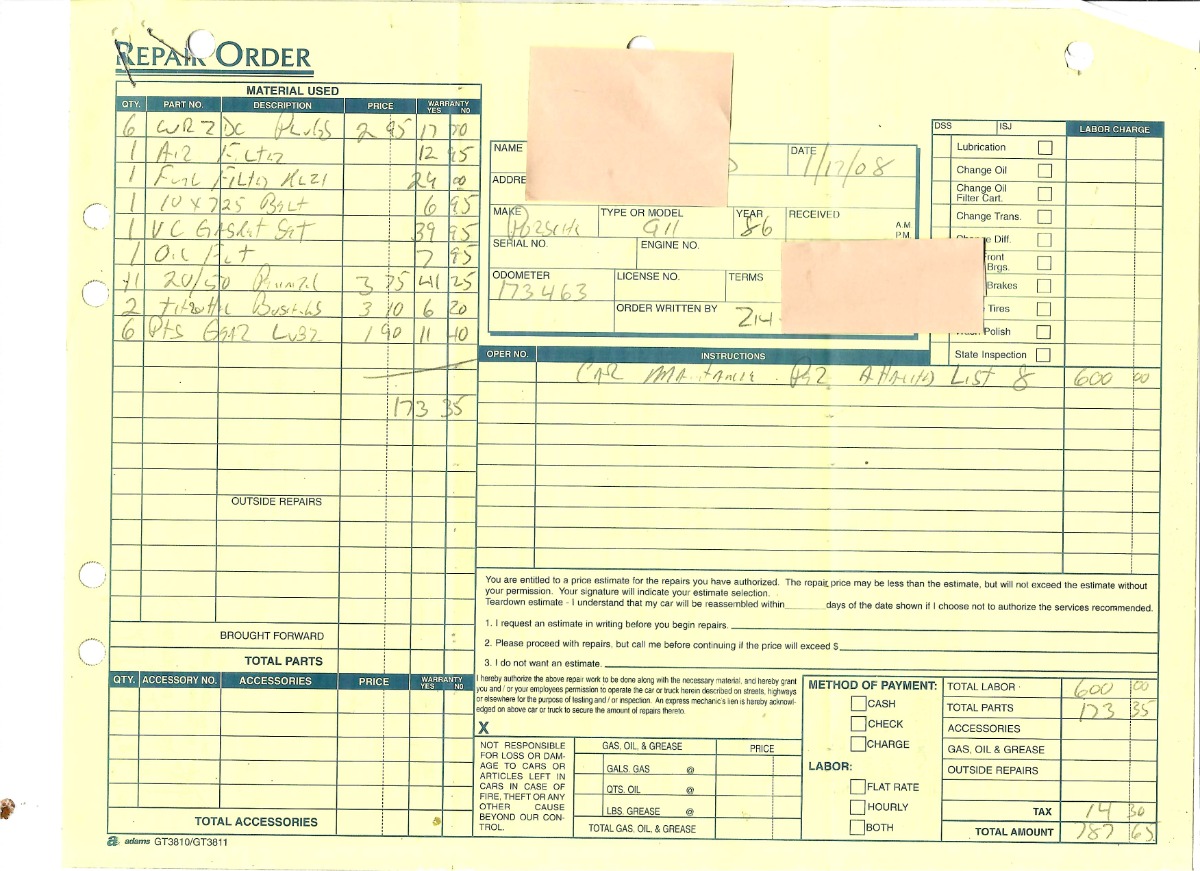 REPAIR ORDER
MATERIAL USED
QTY. PART NO. DESCRIPTION PRICE WARRANTY YES NO
6 WR7DC Plugs 2 95 17 70
1 Air Filter 12 95
1 Fuel Filter 24 00
1 10 x 725 Belt 6 95
1 VC Gasket Set 39 95
1 Oil Filt 7 95
11 20/50 3 75 41 25
2 3 10 6 20
6 Pts Gear Lube 1 90 11 40
173 35
OUTSIDE REPAIRS
BROUGHT FORWARD
TOTAL PARTS
QTY. ACCESSORY NO. ACCESSORIES PRICE WARRANTY YES NO
TOTAL ACCESSORIES
adams GT3810/GT3811
NAME DATE 1/12/08
ADDRE
MAKE Porsche TYPE OR MODEL 911 YEAR 86 RECEIVED A.M. P.M.
SERIAL NO. ENGINE NO.
ODOMETER 173463 LICENSE NO. TERMS
ORDER WRITTEN BY
DSS ISJ LABOR CHARGE
Lubrication
Change Oil
Change Oil Filter Cart.
Change Trans.
Diff.
Front Brgs.
Brakes
Tires
Polish
State Inspection
OPER NO. INSTRUCTIONS
Car Per List 8 600 00
You are entitled to a price estimate for the repairs you have authorized. The repair price may be less than the estimate, but will not exceed the estimate without
your permission. Your signature will indicate your estimate selection.
Teardown estimate - I understand that my car will be reassembled within days of the date shown if I choose not to authorize the services recommended.
1. I request an estimate in writing before you begin repairs.
2. Please proceed with repairs, but call me before continuing if the price will exceed $
3. I do not want an estimate.
I hereby authorize the above repair work to be done along with the necessary material, and hereby grant
you and / or your employees permission to operate the car or truck herein described on streets, highways
or elsewhere for the purpose of testing and / or inspection. An express mechanic's lien is hereby acknowl-
edged on above car or truck to secure the amount of repairs thereto.
X
NOT RESPONSIBLE
FOR LOSS OR DAM-
AGE TO CARS OR
ARTICLES LEFT IN
CARS IN CASE OF
FIRE, THEFT OR ANY
OTHER CAUSE
BEYOND OUR CON-
TROL.
GAS, OIL, & GREASE PRICE
GALS. GAS @
QTS. OIL @
LBS. GREASE @
TOTAL GAS, OIL, & GREASE
METHOD OF PAYMENT:
CASH
CHECK
CHARGE
LABOR:
FLAT RATE
HOURLY
BOTH
TOTAL LABOR 600 00
TOTAL PARTS 173 35
ACCESSORIES
GAS, OIL & GREASE
OUTSIDE REPAIRS
TAX 14 30
TOTAL AMOUNT 787 65